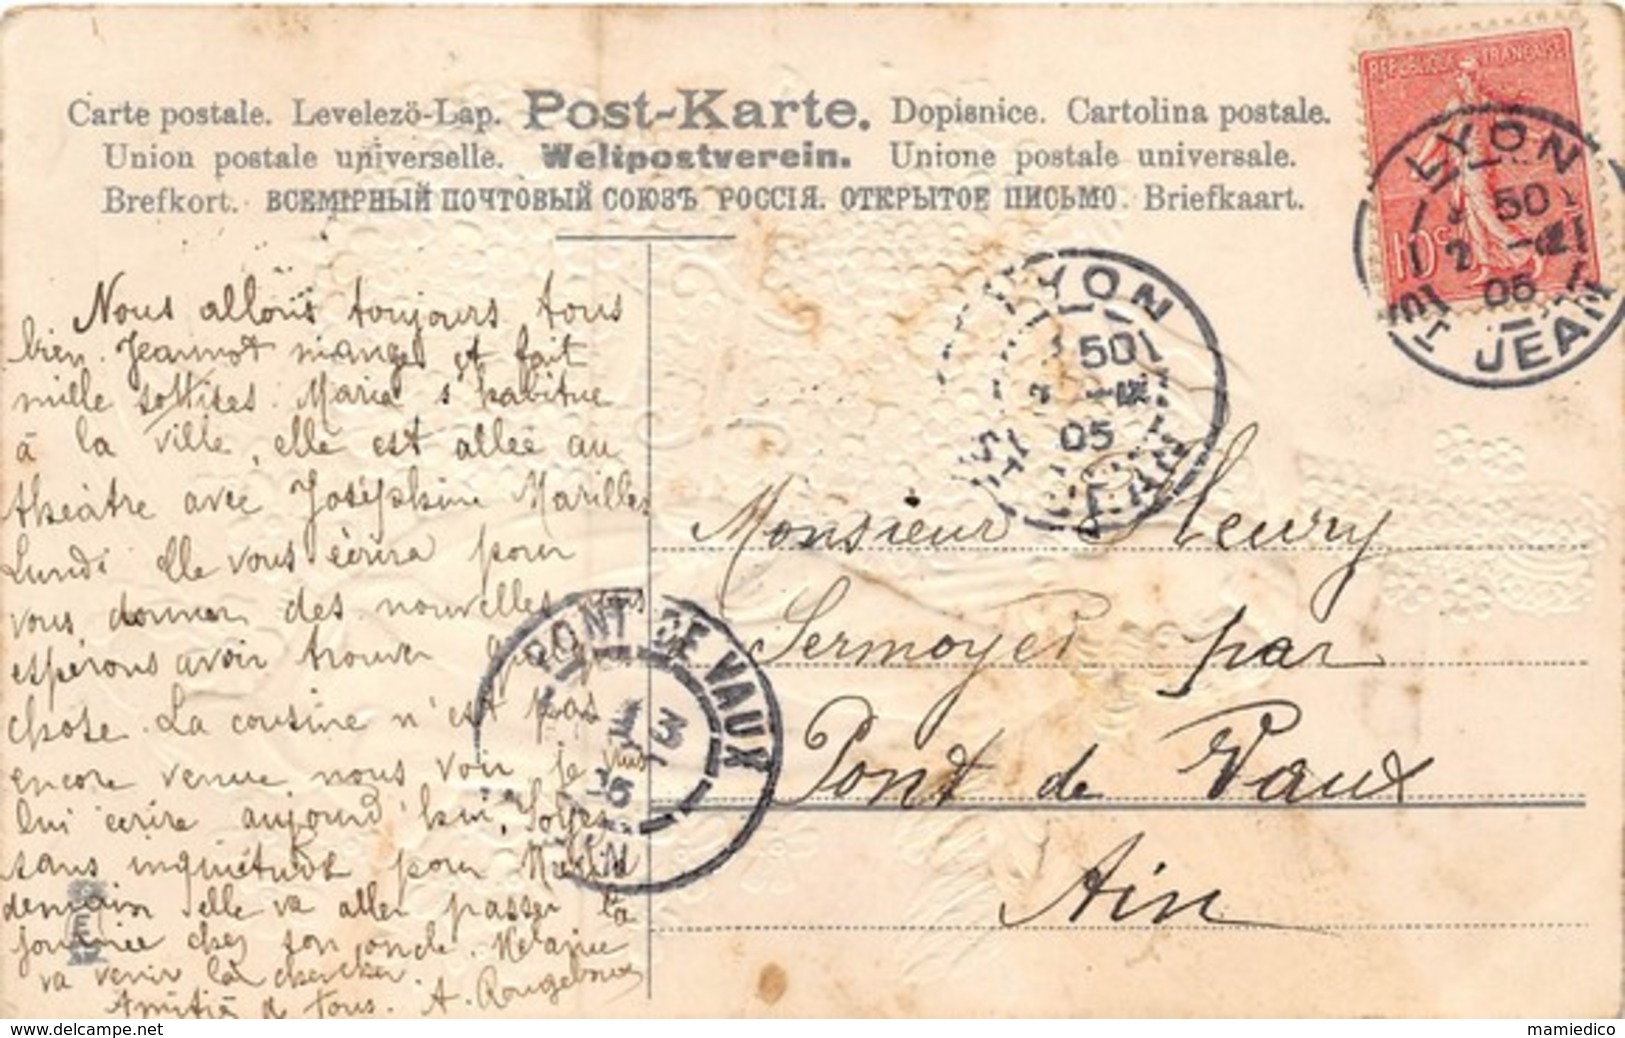 Carte postale. Levelezö-Lap. Post-Karte. Dopisnice. Cartolina postale.
Union postale universelle. Weltpostverein. Unione postale universale.
Brefkort. ВСЕМІРНЫЙ ПОЧТОВЫЙ СОЮЗЪ РОССІЯ. ОТКРЫТОЕ ПИСЬМО. Briefkaart.
REPUBLIQUE FRANÇAISE
10c
LYON
50
2
05
ST JEAN
LYON
50
2
05
ST JEAN
Nous allons toujours tous
bien. Jeannot mange et fait
mille sottises. Maria s'habitue
à la ville, elle est allée au
théâtre avec Joséphine
Lundi elle vous écrira pour
vous donner des nouvelles, vous
espérons avoir trouver
chose. La cousine n'est pas
encore venue nous voir, je vais
lui écrire aujourd'hui. Soyez
sans inquiétude pour Maria
demain elle va aller passer la
journée chez son oncle. Melanie
va venir la chercher.
Amitié à tous. A.
PONT DE VAUX
3
AIN
Monsieur Fleury
Sermoyer par
Pont de Vaux
Ain
www.delcampe.net
mamiedico